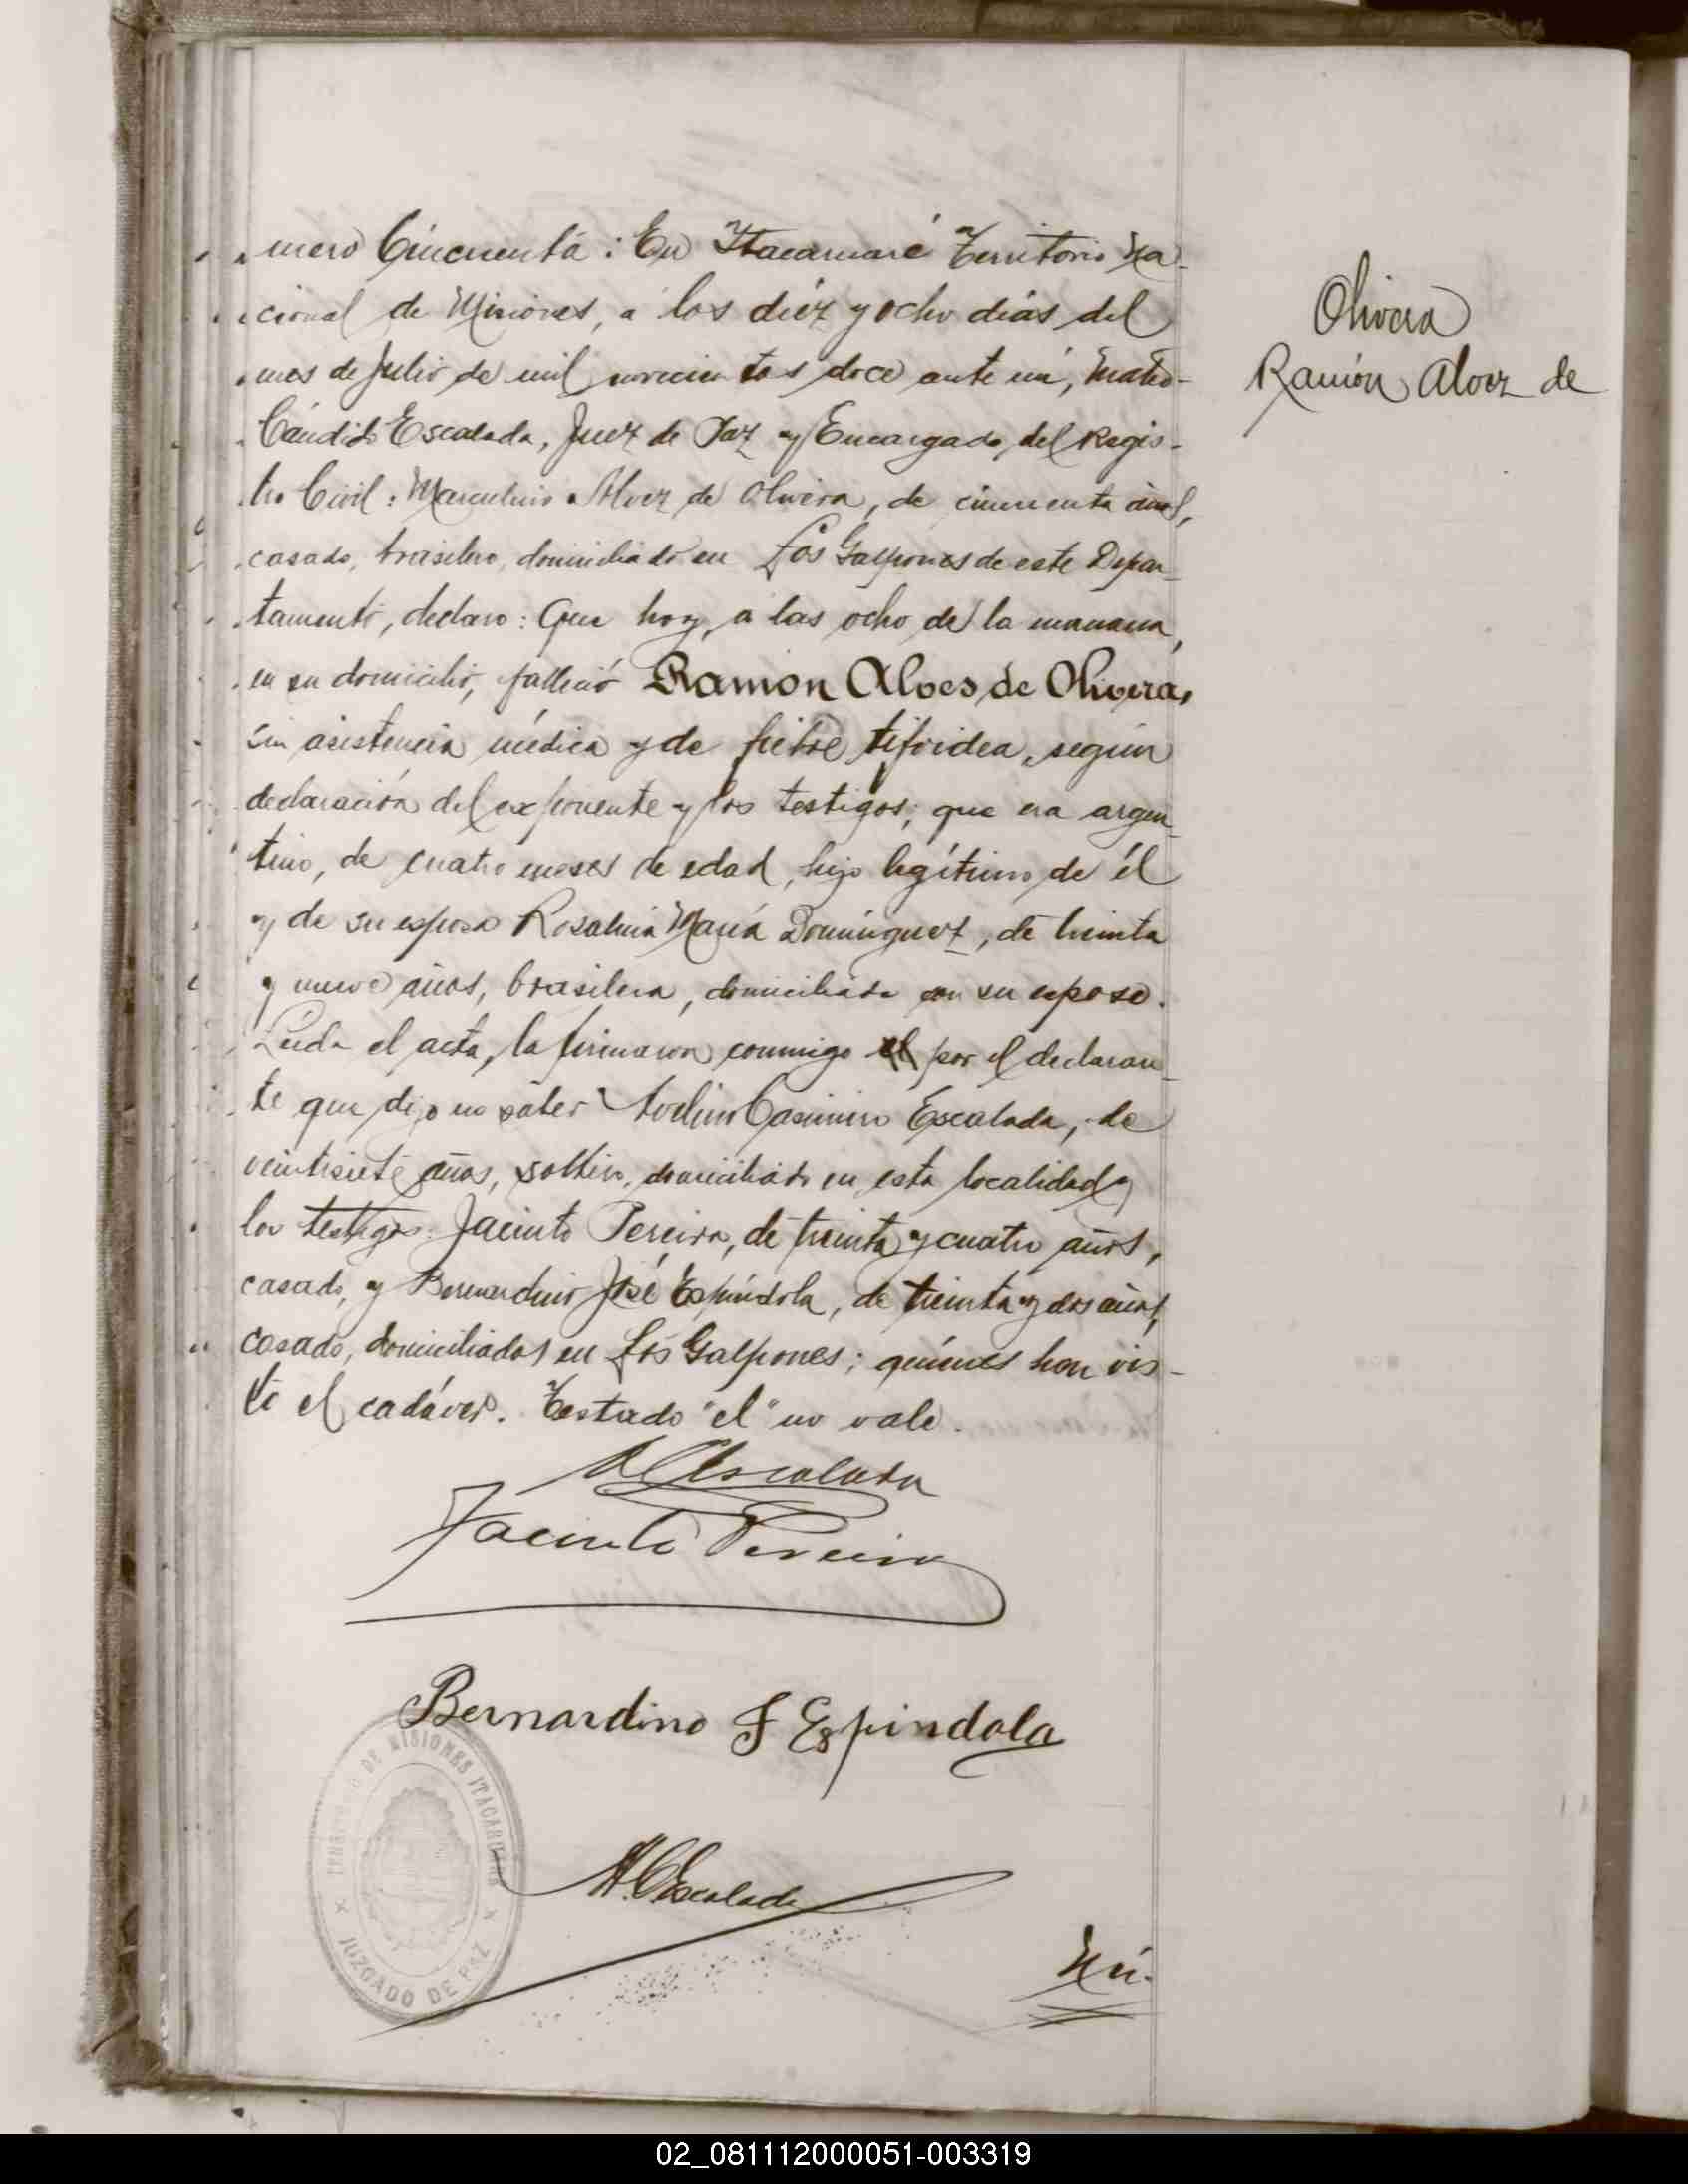 mero Cincuenta: En Itacaruaré Territorio Na-
cional de Misiones, a los diez y ocho dias del
mes de Julio de mil novecientos doce ante mi, Mateo
Cándido Escalada, Juez de Paz y Encargado del Regis-
tro Civil: Marculino Alvez de Olivera, de cincuenta años,
casado, brasilero, domiciliado en Los Galpones de este Depar-
tamento, declaro: Que hoy, a las ocho de la manana,
en su domicilio, falleció Ramon Alves de Olivera,
sin asistencia médica y de fiebre tifoidea, según
declaración del exponente y los testigos; que era argen-
tino, de cuatro meses de edad, hijo legítimo de él
y de su esposa Rosalina María Domínguez, de treinta
y nueve años, brasilera, domiciliada con su esposo.
Leida el acta, la firmaron conmigo el por el declaran-
te que dijo no saber Avelino Casimiro Escalada, de
veintisiete años, soltero, domiciliado en esta localidad y
los testigos: Jacinto Pereira, de treinta y cuatro años,
casado, y Bernardino José Espíndola, de treinta y dos años,
casado, domiciliados en Los Galpones; quiénes han vis-
to el cadáver. Testado "el" no vale.
A C Escalada
Jacinto Pereira
Bernardino J Espindola
M. C Escalada
Nú-
Olivera
Ramón Alvez de
DE MISIONES ITACARUARE
JUZGADO DE PAZ
02_081112000051-003319